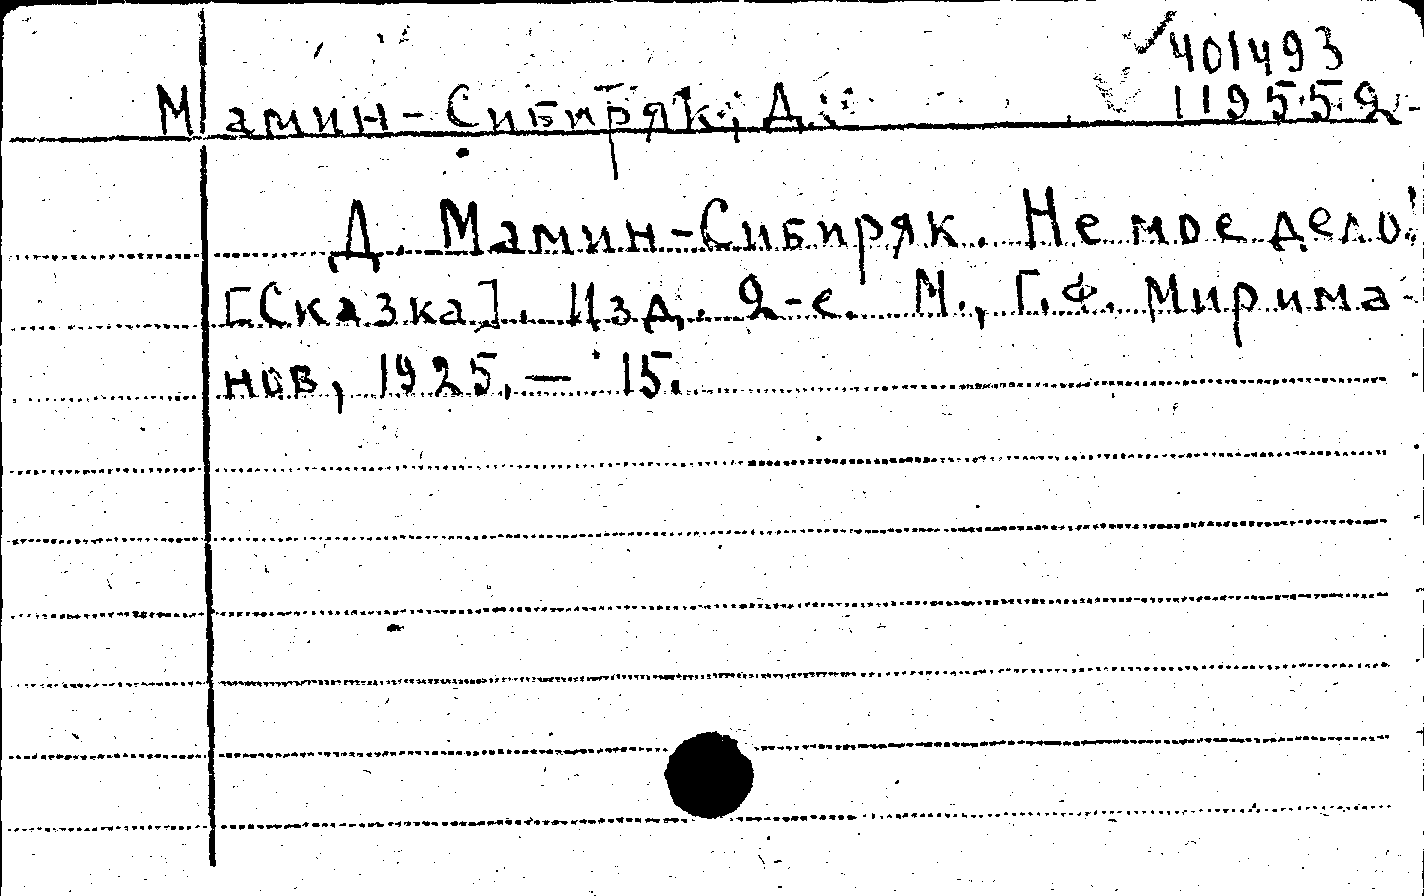 401493
Мамин-Сибиряк, Д.
119552
Д. Мамин-Сибиряк. Не мое дело!
[Сказка]. Изд. 2-е. М., Г.Ф. Мирима-
нов, 1925. — 15.